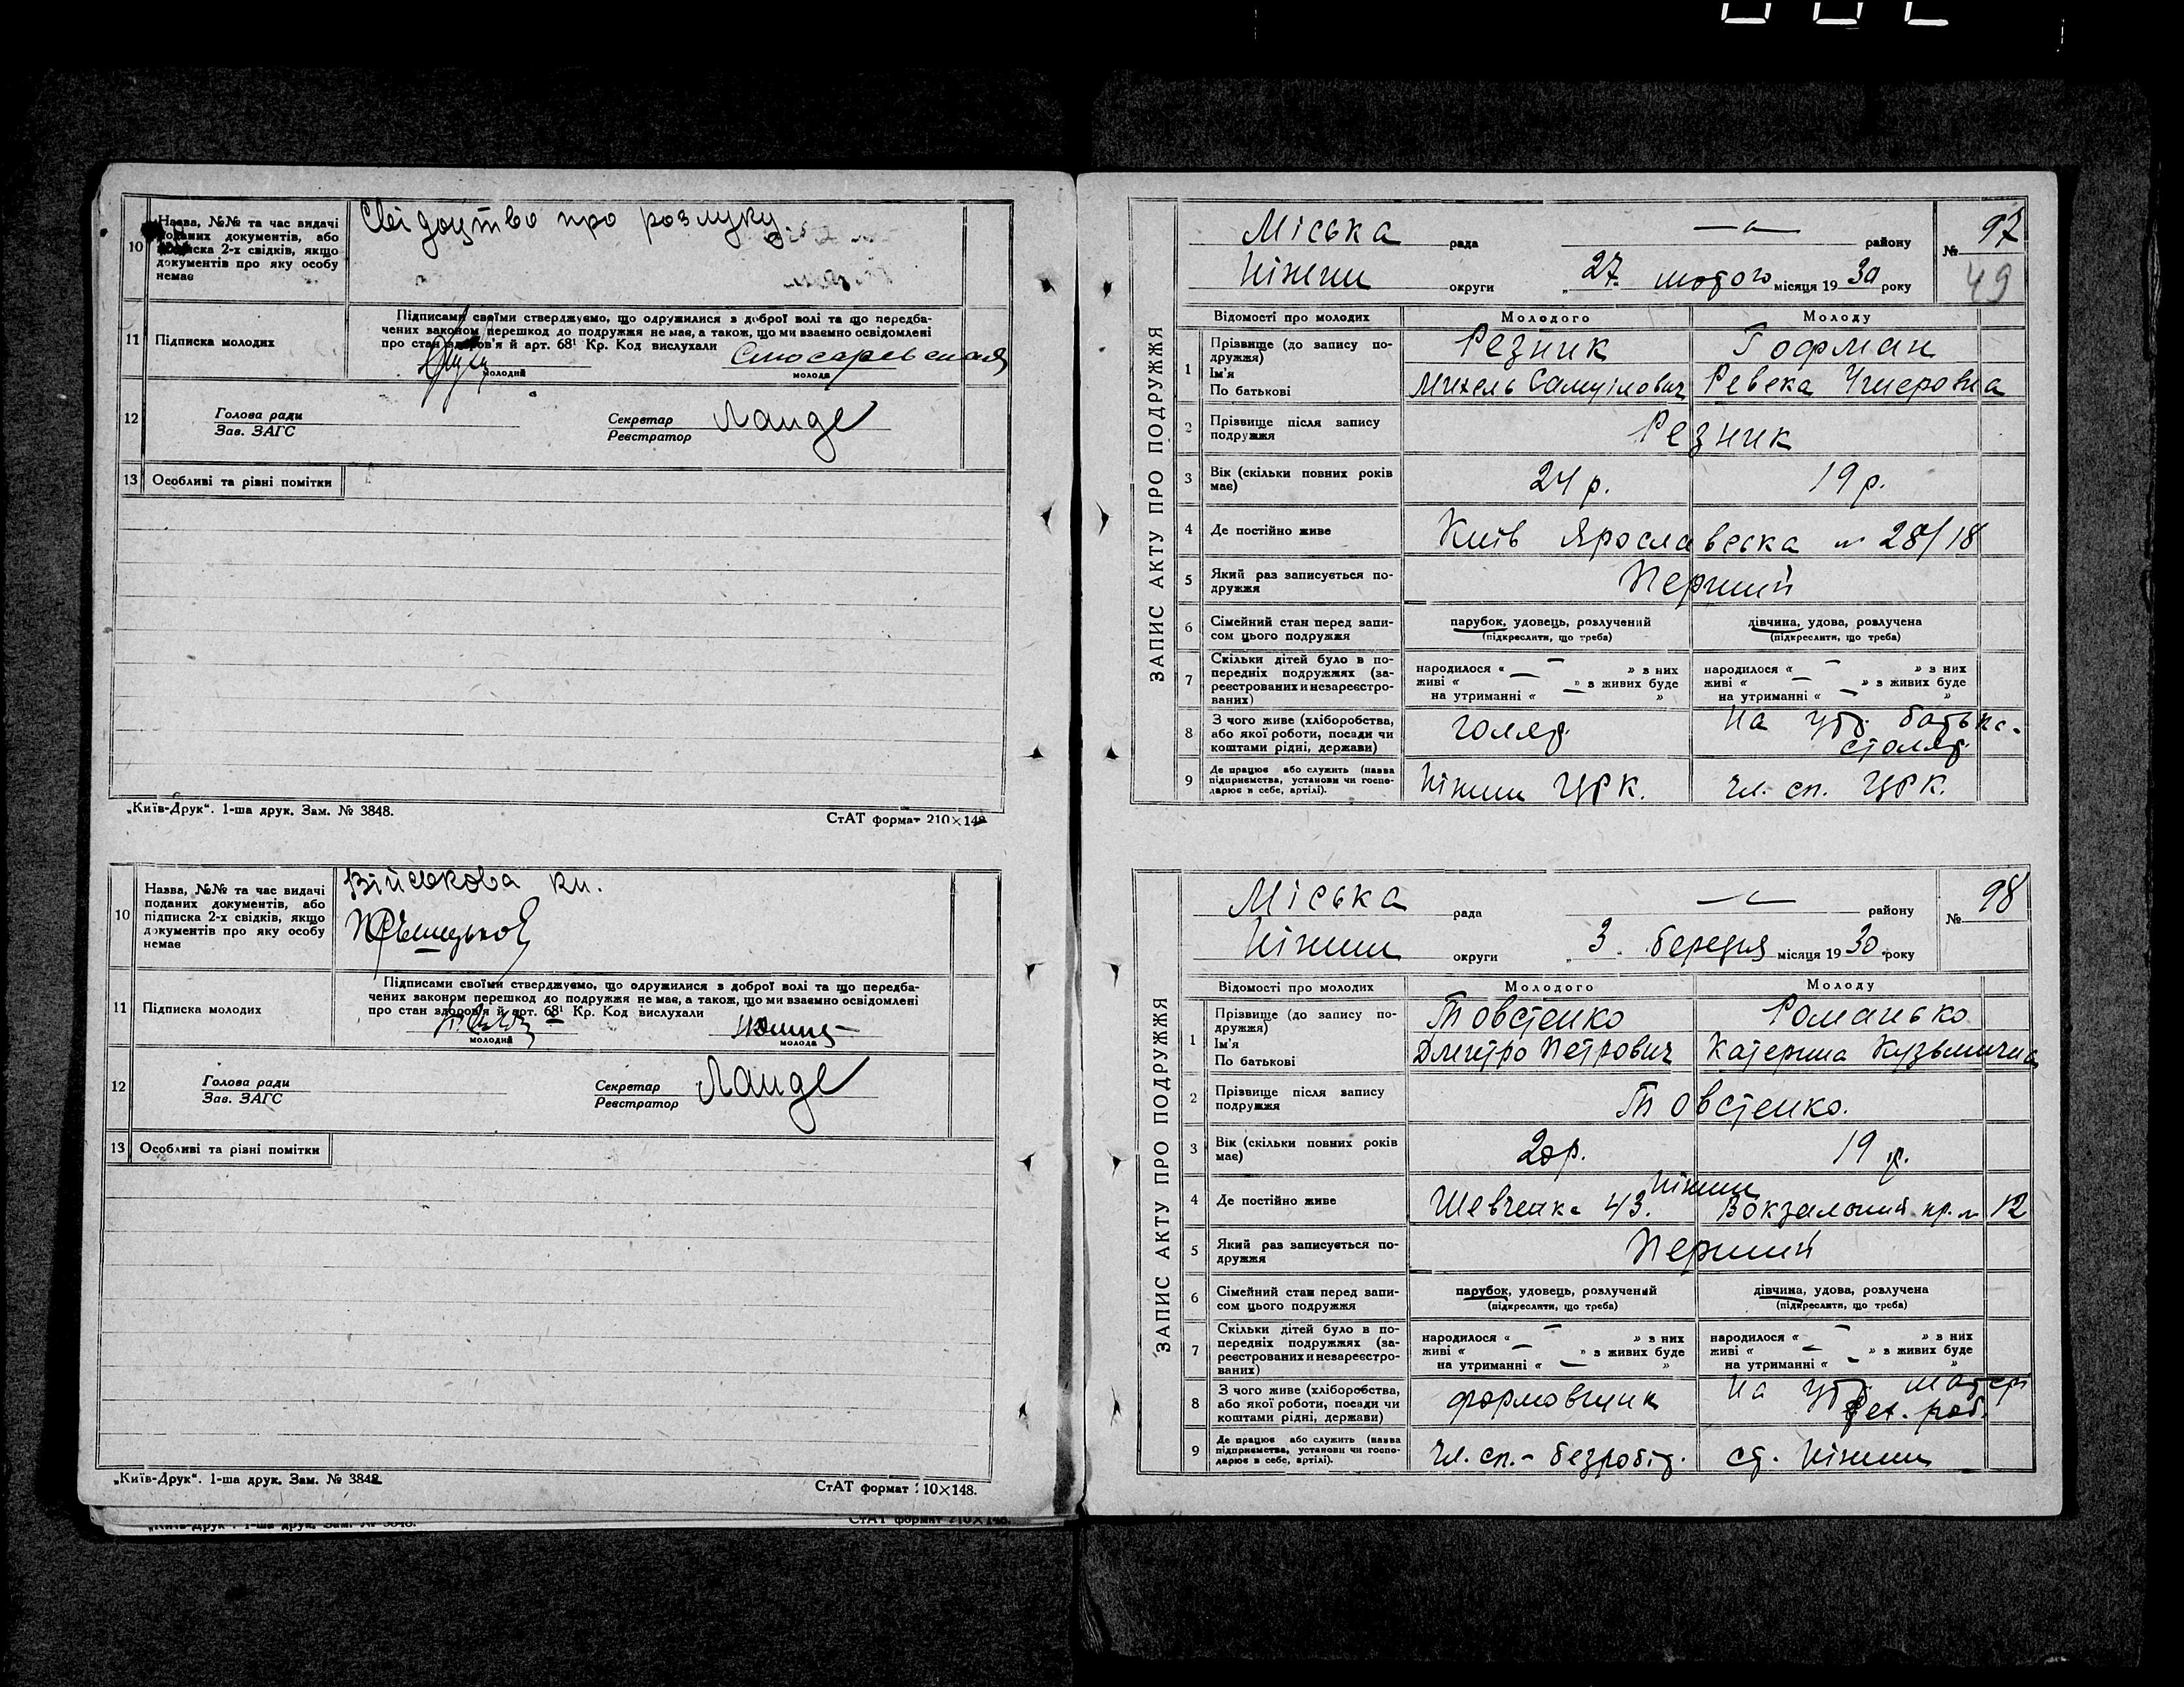 10
Назва, №№ та час видачі
поданих документів, або
підписка 2-х свідків, якщо
документів про яку особу
немає
Свідоцтво про розлуку
11
Підписка молодих
Підписами своїми стверджуємо, що одружилися з доброї волі та що передба-
чених законом перешкод до подружжя не має, а також, що ми взаємно освідомлені
про стан здоров'я й арт. 68¹ Кр. Код вислухали
молодий
молода
12
Голова ради
Зав. ЗАГС
Секретар
Реєстратор
Ланде
13 Особливі та різні помітки
„Київ-Друк“. 1-ша друк. Зам. № 3848.
СтАТ формат 210×148
10
Назва, №№ та час видачі
поданих документів, або
підписка 2-х свідків, якщо
документів про яку особу
немає
Військова кн.
11
Підписка молодих
Підписами своїми стверджуємо, що одружилися з доброї волі та що передба-
чених законом перешкод до подружжя не має, а також, що ми взаємно освідомлені
про стан здоров'я й арт. 68¹ Кр. Код вислухали
молодий
молода
12
Голова ради
Зав. ЗАГС
Секретар
Реєстратор
Ланде
13 Особливі та різні помітки
„Київ-Друк“. 1-ша друк. Зам. № 3848.
СтАТ формат 10×148.
ЗАПИС АКТУ ПРО ПОДРУЖЖЯ
Міська рада — району
№ 97
49
Ніжин округи „ 27. лютого місяця 1930 року
Відомості про молодих Молодого Молоду
1
Прізвище (до запису по-
дружжя)
Ім'я
По батькові
Резник Гофман
Михель Самуілович Ревека
2
Прізвище після запису
подружжя
Резник
3
Вік (скільки повних років
має)
24 р. 19 р.
4 Де постійно живе
Київ Ярославеска № 28/18
5
Який раз записується по-
дружжя
Перший
6
Сімейний стан перед запи-
сом цього подружжя
парубок, удовець, розлучений
(підкреслити, що треба)
дівчина, удова, розлучена
(підкреслити, що треба)
7
Скільки дітей було в по-
передніх подружжях (за-
реєстрованих и незареєстро-
ваних)
народилося « — » з них
живі « — » з живих буде
на утриманні « — »
народилося « — » з них
живі « — » з живих буде
на утриманні « — »
8
З чого живе (хліборобства,
або якої роботи, посади чи
коштами рідні, держави)
голяр.
на утр. батька.
столяр.
9
Де працює або служить (назва
підприємства, установи чи госпо-
дарює в себе, артілі).
Ніжин ЦРК. чл. сп. ЦРК.
ЗАПИС АКТУ ПРО ПОДРУЖЖЯ
Міська рада — району
№ 98
Ніжин округи „ 3. березня місяця 1930 року
Відомості про молодих Молодого Молоду
1
Прізвище (до запису по-
дружжя)
Ім'я
По батькові
Товстенко Романько
Дмитро Петрович Катерина Кузьмична
2
Прізвище після запису
подружжя
Товстенко.
3
Вік (скільки повних років
має)
20р. 19 р.
4 Де постійно живе
Ніжин
Шевченка 43. Вокзальний пр. № 12
5
Який раз записується по-
дружжя
Перший
6
Сімейний стан перед запи-
сом цього подружжя
парубок, удовець, розлучений
(підкреслити, що треба)
дівчина, удова, розлучена
(підкреслити, що треба)
7
Скільки дітей було в по-
передніх подружжях (за-
реєстрованих и незареєстро-
ваних)
народилося « — » з них
живі « — » з живих буде
на утриманні « — »
народилося « — » з них
живі « — » з живих буде
на утриманні « — »
8
З чого живе (хліборобства,
або якої роботи, посади чи
коштами рідні, держави)
формовщик
на утр. матері
роб.
9
Де працює або служить (назва
підприємства, установи чи госпо-
дарює в себе, артілі).
чл. сп. - безробіт. ст. Ніжин